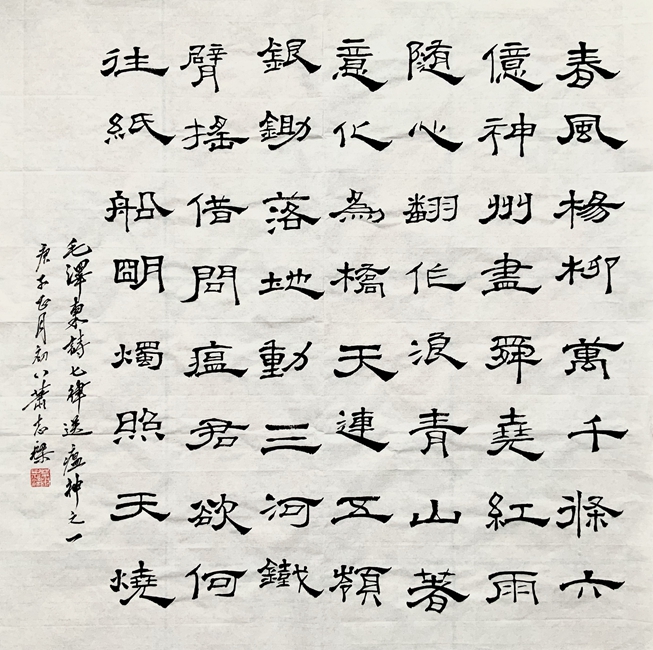 春風楊柳萬千條六
億神州盡舜堯紅雨
随心翻作浪青山著
意化為橋天連五嶺
銀鋤落地動三河鐵
臂搖借問瘟君欲何
往紙船明燭照天燒
毛澤東詩七律送瘟神之一
庚子正月初八蕭志